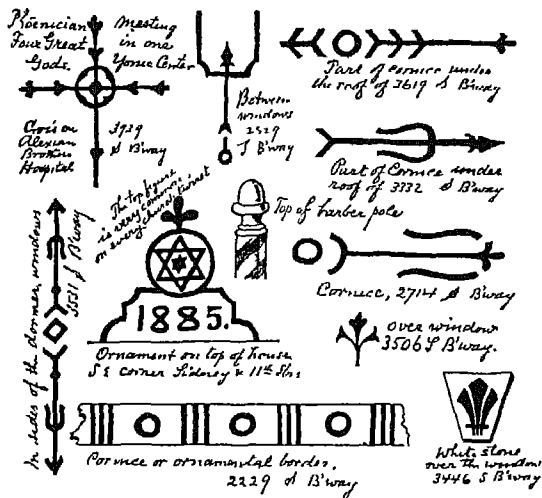 Phoenician
Four Great
Gods.
Meeting
in one
Yonic Center
Cross on
Alexian
Brothers
Hospital
3939
S B'way
Between
windows
2529
S B'way
Part of cornice under
the roof of 3619 S B'way
Part of Cornice under
roof of 3332 S B'way
The top figure
is very common
on every church turret
Top of barber pole
Cornice, 2714 S B'way
In sides of the dormer windows
3511 S B'way
1885.
Ornament on top of house
S E corner Sidney & 11th Sts
over window
3506 S B'way.
Cornice or ornamental border.
2229 S B'way
White stone
over the window
3446 S B'way